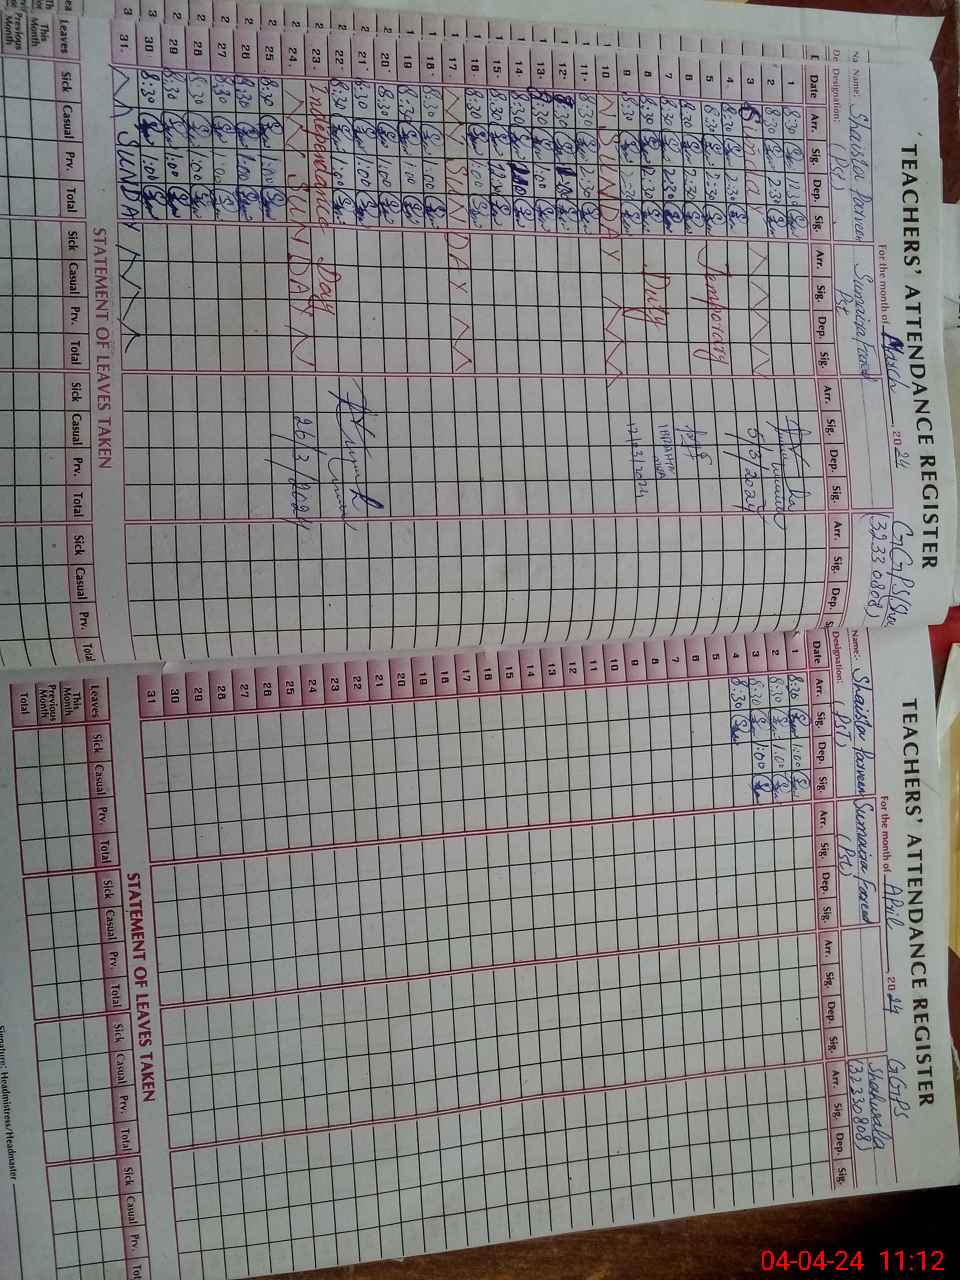 TEACHERS' ATTENDANCE REGISTER
For the month of March 2024
GGPS
(32330808)
Name: Shaista Parveen Sumaira Fareed
Designation: (Pst) Pst
Date Arr. Sig. Dep. Sig. Arr. Sig. Dep. Sig. Arr. Sig. Dep. Sig. Arr. Sig. Dep.
1 8:30 12:30
2 8:30 2:30
3 Sunday
4. 8:30 2:30
5 8:30 2:30 Temporary
6 8:30 2:30
7 8:30 2:30
8 8:30 2:30 Duty
9 8:30 2:30
10 SUNDAY
11 8:30 2:30
12 8:30 1:00
13 8:30 1:00
14. 8:30
15 8:30 12:30
16. 8:30 1:00
17. SUNDAY
18 8:30 1:00
19 8:30 1:00
20 8:30 1:00
21 8:30 1:00
22 8:30 1:00
23. Independance Day
24. SUNDAY
25 8:30 1:00
26 8:30 1:00
27 8:30 1:00
28 8:30 1:00
29 8:30 1:00
30 8:30 1:00
31. SUNDAY
5/3/2024
17/03/2024
26/3/2024
STATEMENT OF LEAVES TAKEN
Leaves Sick Casual Prv. Total Sick Casual Prv. Total Sick Casual Prv. Total Sick Casual Prv. Total
This Month
Previous Month
TEACHERS' ATTENDANCE REGISTER
For the month of April, 2024
GGPS
Shahwala
(32330808)
Name: Shaista Parveen Sumaira Fareed
Designation: (PST) (Pst)
Date Arr. Sig. Dep. Sig. Arr. Sig. Dep. Sig. Arr. Sig. Dep. Sig. Arr. Sig. Dep. Sig.
1 8:30 1:00
2 8:30 1:00
3 8:30 1:00
4 8:30
5
6
7
8
9
10
11
12
13
14
15
16
17
18
19
20
21
22
23
24
25
26
27
28
29
30
31
STATEMENT OF LEAVES TAKEN
Leaves Sick Casual Prv. Total Sick Casual Prv. Total Sick Casual Prv. Total Sick Casual Prv. Tot
This Month
Previous Month
Total
Signature: Headmistress/Headmaster
04-04-24 11:12